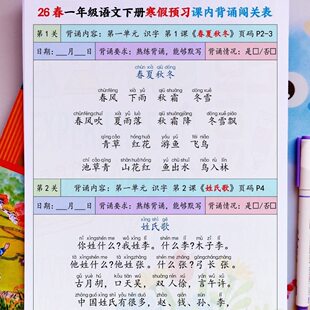 26春一年级语文下册寒假预习课内背诵闯关表
第1关 背诵内容：第一单元 识字 第1课《春夏秋冬》页码P2-3
日期：__月__日 背诵要求：熟练背诵，能够默写 背诵情况：是□/否□
chūn xià qiū dōng
春夏秋冬
chūnfēng xià yǔ qiū shuāng dōng xuě
春风 下雨 秋霜 冬雪
chūnfēng chuī xià yǔ luò qiū shuāng jiàng dōng xuě piāo
春风吹 夏雨落 秋霜降 冬雪飘
qīng cǎo hóng huā yóu yú fēi niǎo
青草 红花 游鱼 飞鸟
chí cǎo qīng shān huā hóng yú chū shuǐ niǎo rù lín
池草青 山花红 鱼出水 鸟入林
第2关 背诵内容：第一单元 识字 第2课《姓氏歌》页码P4
日期：__月__日 背诵要求：熟练背诵，能够默写 背诵情况：是□/否□
xìng shì gē
姓氏歌
nǐ xìng shén me wǒ xìng lǐ shén me lǐ mù zǐ lǐ
你姓什么？我姓李。什么李？木子李。
tā xìng shén me tā xìng zhāng shén me zhāng gōng cháng zhāng
他姓什么？他姓张。什么张？弓长张。
gǔ yuè hú kǒu tiān wú shuāng rén xú yán wǔ xǔ
古月胡，口天吴，双人徐，言午许。
zhōng guó xìng shì yǒu hěn duō zhào qián sūn lǐ
中国姓氏有很多，赵、钱、孙、李，